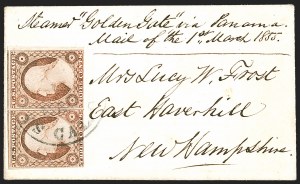 Steamer "Golden Gate" via Panama.
Mail of the 1st March 1855.
Mrs Lucy W. Frost
East Haverhill
New Hampshire.
CAL